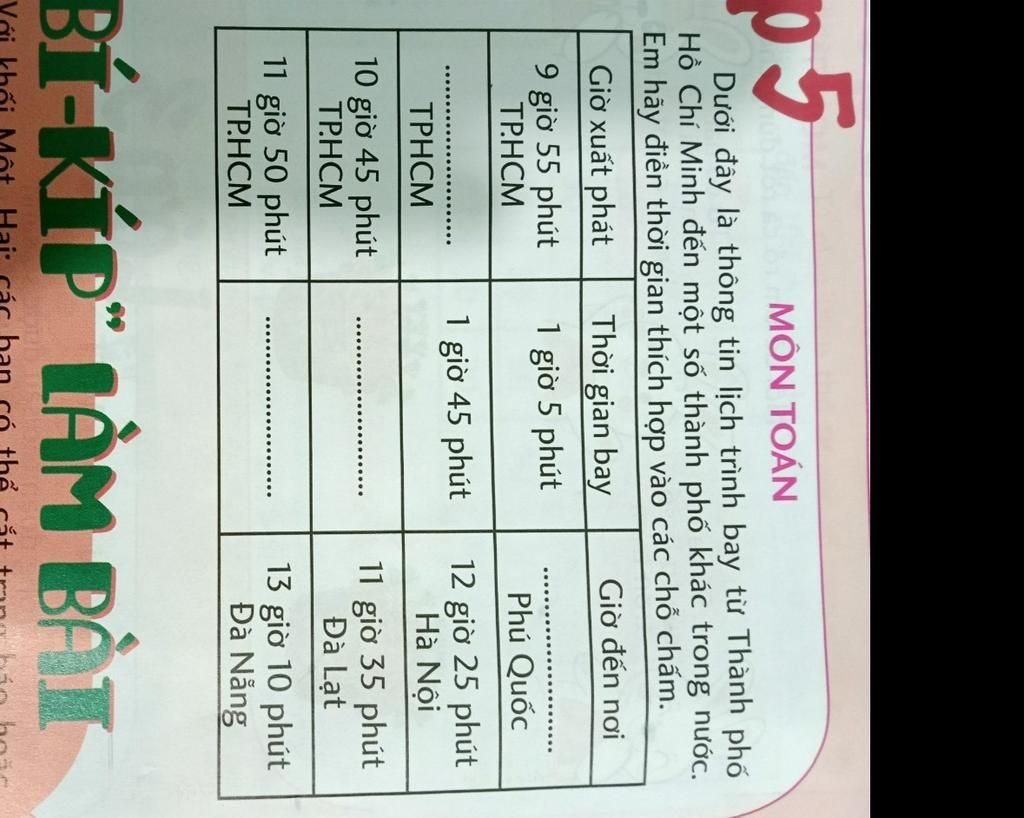 p 5
MÔN TOÁN
Dưới đây là thông tin lịch trình bay từ Thành phố
Hồ Chí Minh đến một số thành phố khác trong nước.
Em hãy điền thời gian thích hợp vào các chỗ chấm.
Giờ xuất phát Thời gian bay Giờ đến nơi
9 giờ 55 phút 1 giờ 5 phút ........................
TP.HCM Phú Quốc
........................ 1 giờ 45 phút 12 giờ 25 phút
TPHCM Hà Nội
10 giờ 45 phút ........................ 11 giờ 35 phút
TP.HCM Đà Lạt
11 giờ 50 phút ........................ 13 giờ 10 phút
TP.HCM Đà Nẵng
BÍ-KÍP” LÀM BÀI
Với khối Một, Hai: các bạn có thể cắt trang báo hoặc